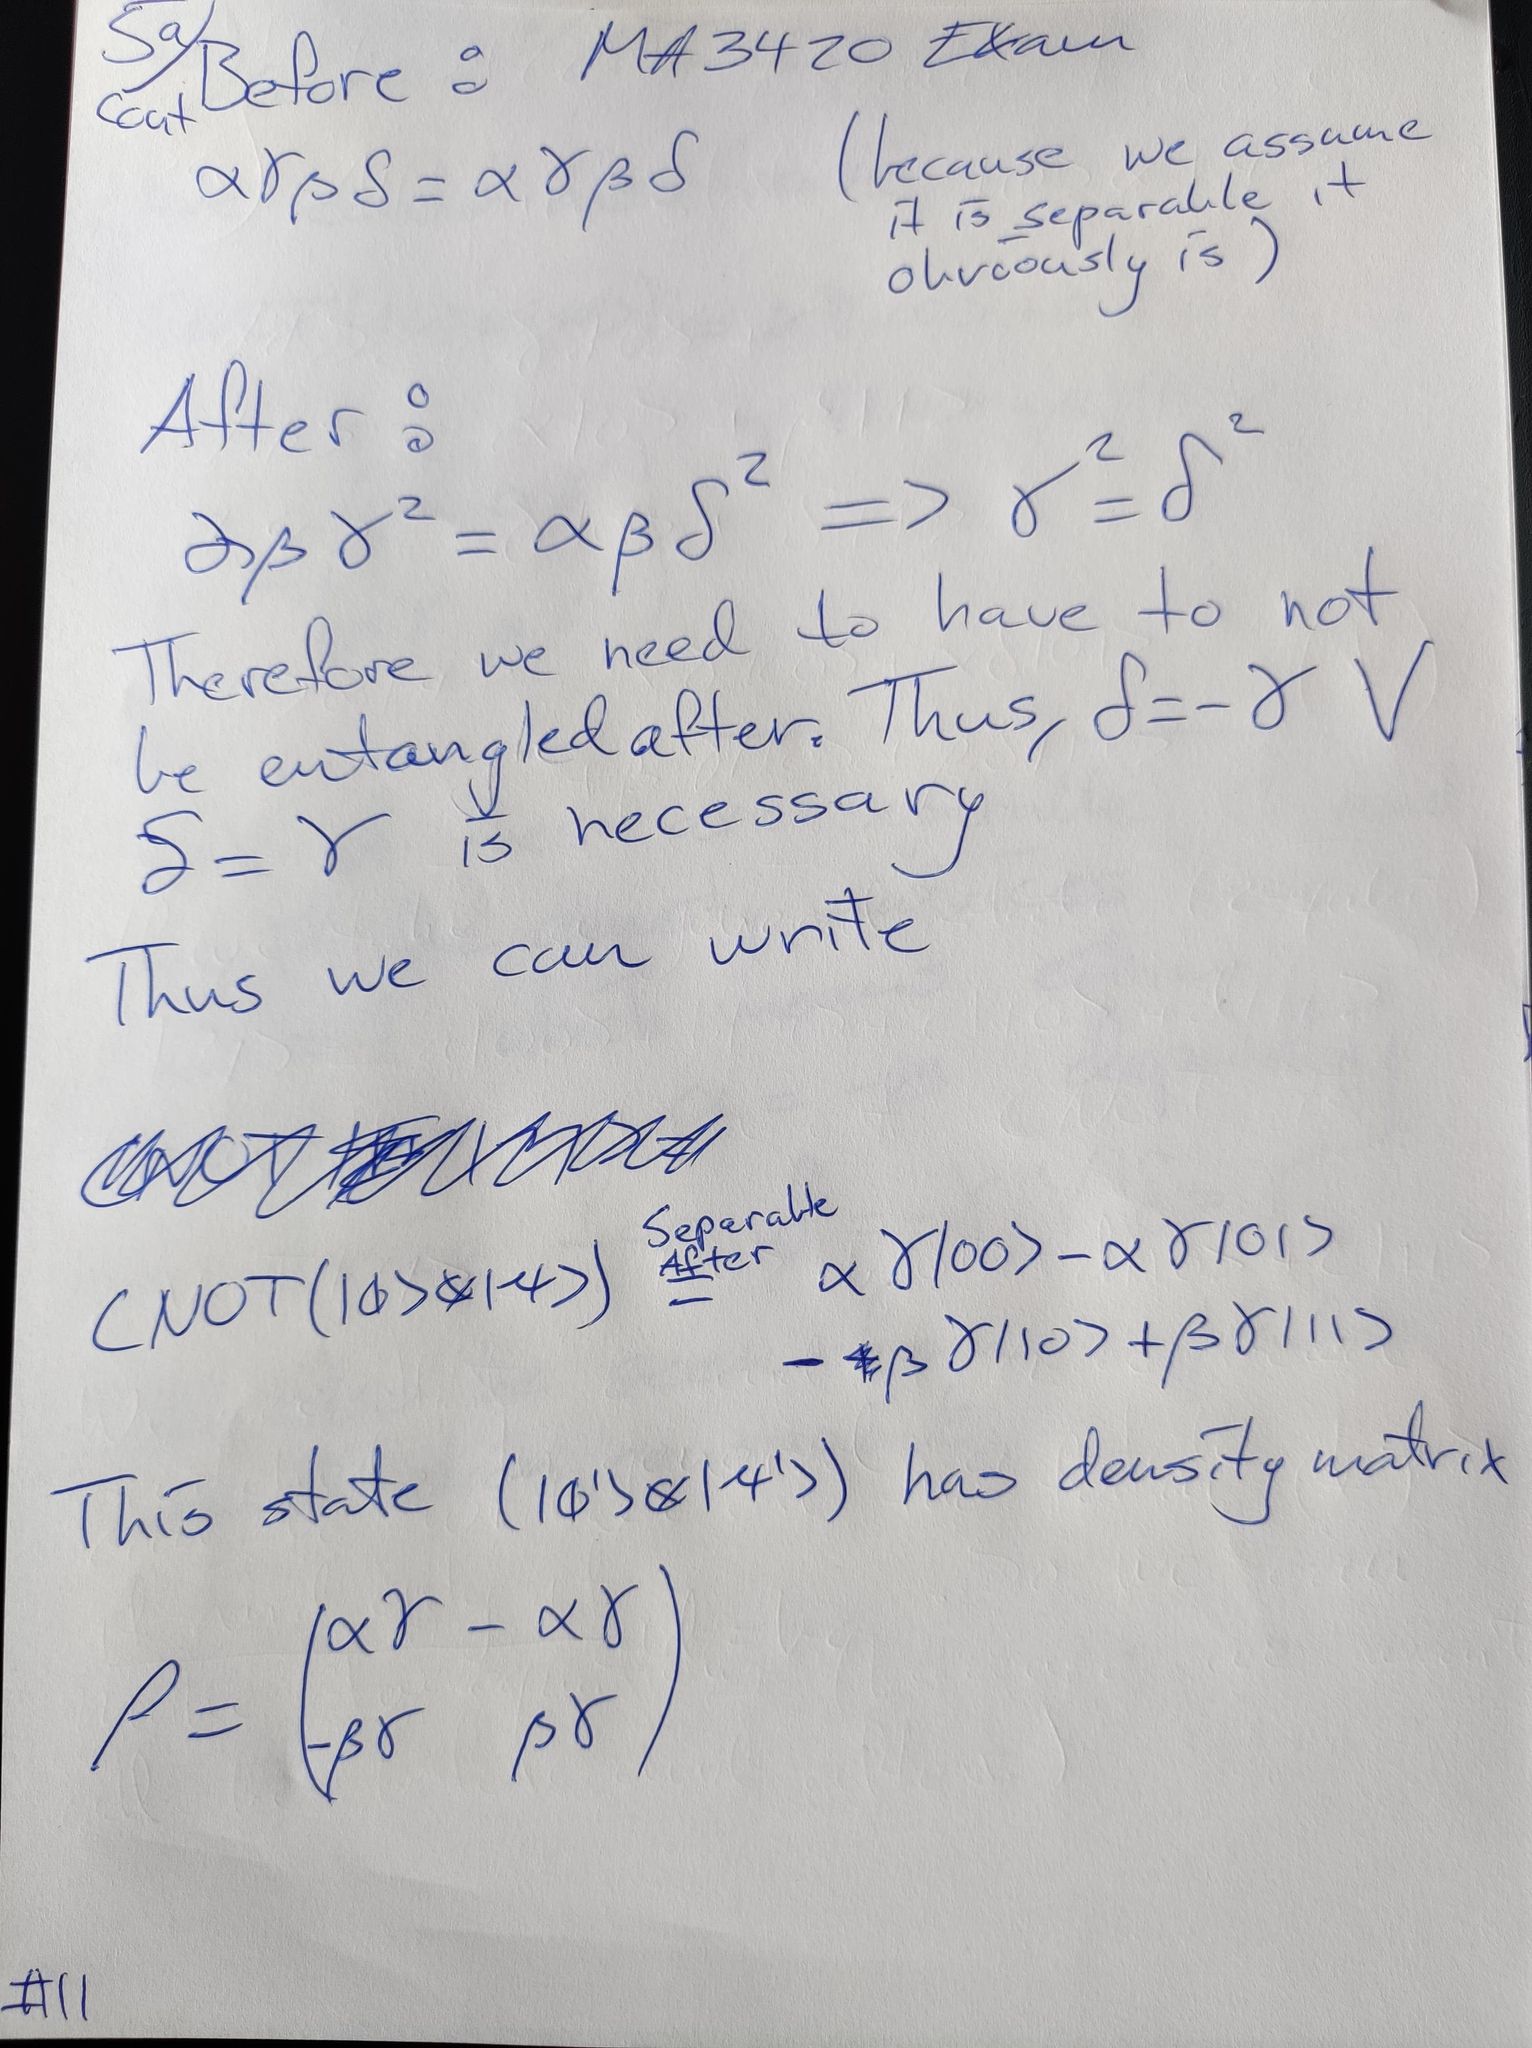 5a/ Before: MA3420 Exam
Cont
αγβδ = αγβδ (because we assume
it is separable it
obviously is)
After:
αβγ² = αβδ² => γ² = δ²
Therefore we need to have to not
be entangled after. Thus, δ=-γ V
δ=γ is necessary
Thus we can write
CNOT(|ϕ>⊗|ψ>) = Separable After αγ|00> - αγ|01>
- βγ|10> + βγ|11>
This state (|ϕ'>⊗|ψ'>) has density matrix
ρ = (αγ - αγ
-βγ βγ)
#11